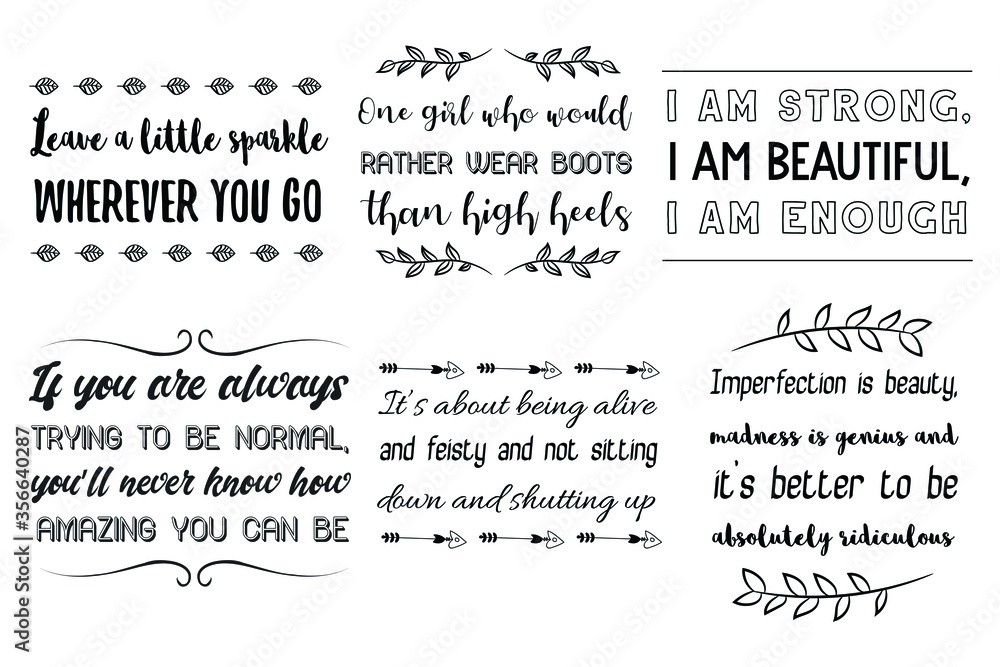 Leave a little sparkle
WHEREVER YOU GO
One girl who would
RATHER WEAR BOOTS
than high heels
I AM STRONG,
I AM BEAUTIFUL,
I AM ENOUGH
If you are always
TRYING TO BE NORMAL,
you'll never know how
AMAZING YOU CAN BE
It's about being alive
and feisty and not sitting
down and shutting up
Imperfection is beauty,
madness is genius and
it's better to be
absolutely ridiculous
Adobe Stock | #356640287